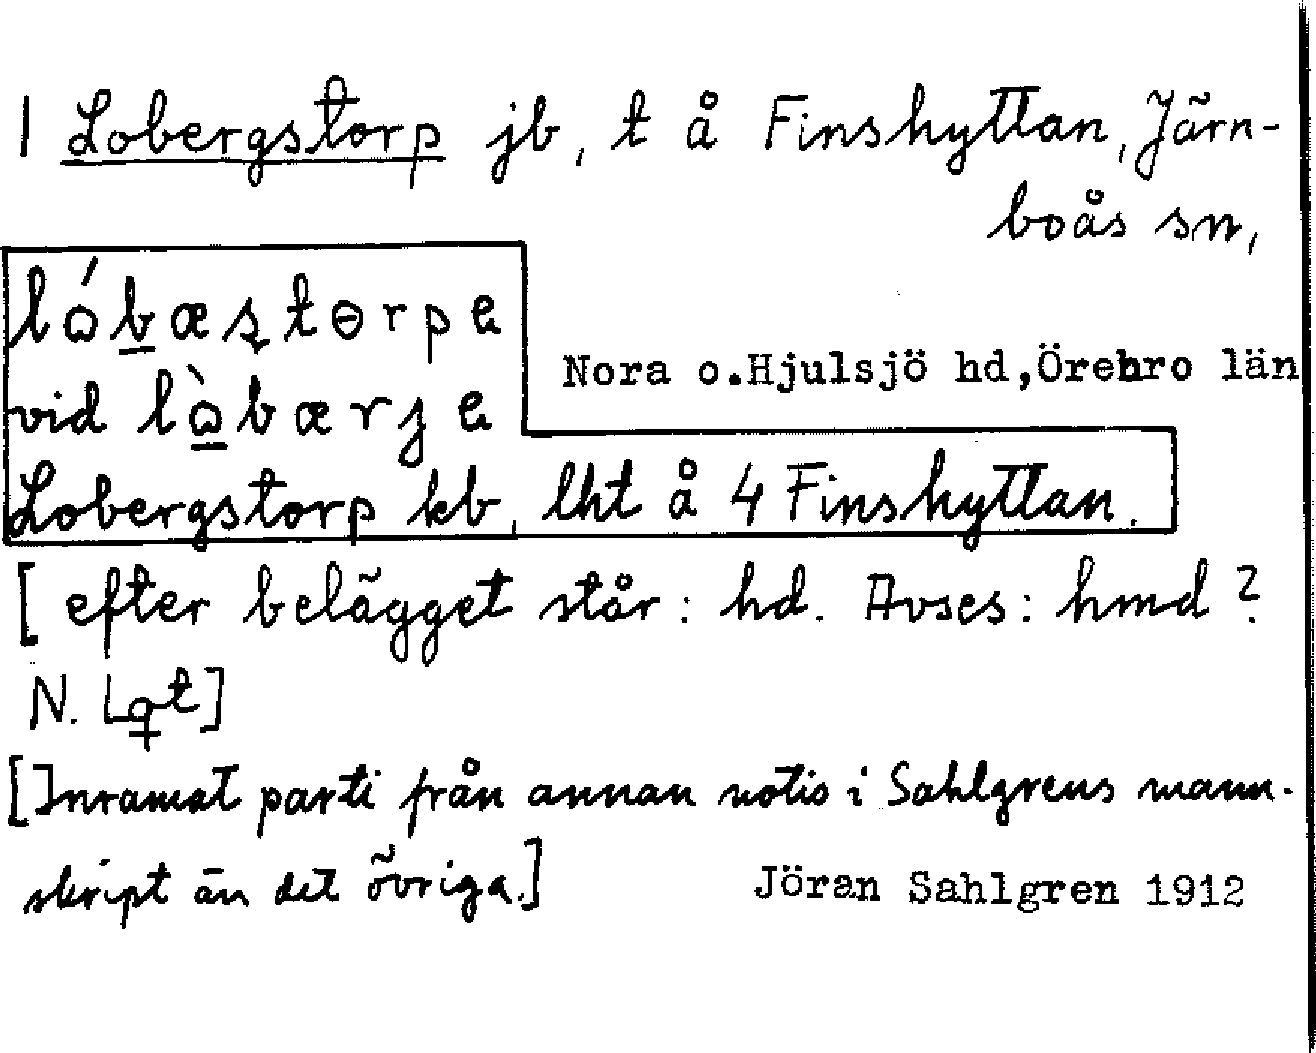 1 Lobergstorp jb, t å Finshyttan, Järn-
boås sn,
lɷ́bæstɵrpa
Nora o.Hjulsjö hd,Örebro län
vid lɷ̀bærja
Lobergstorp kb, lht å 4 Finshyttan.
[efter belägget står: hd. Avses: hmd?
N. L♀t]
[Inramat parti från annan notis i Sahlgrens manu-
skript än det övriga.]
Jöran Sahlgren 1912